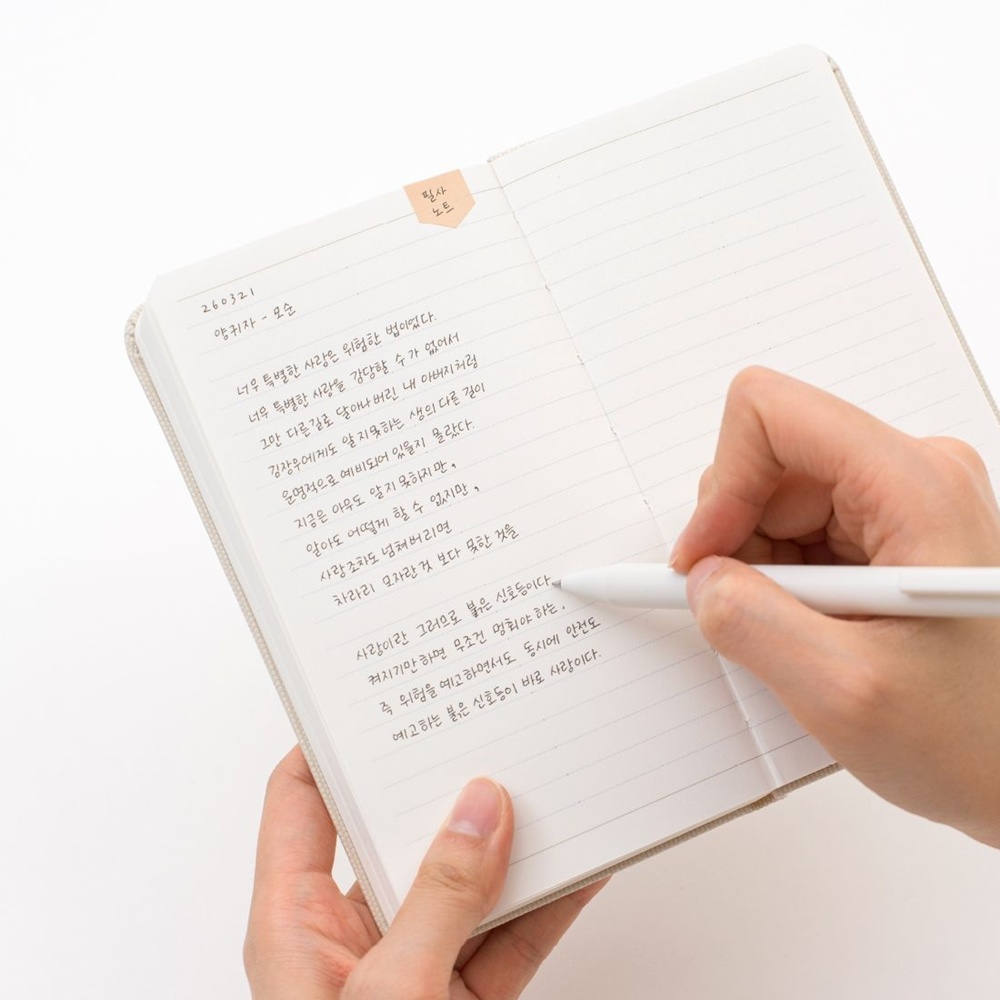 필사
노트
260321
양귀자 - 모순
너무 특별한 사랑은 위험한 법이었다.
너무 특별한 사랑을 감당할 수가 없어서
그만 다른길로 달아나버린 내 아버지처럼
김장우에게도 알지못하는 생의 다른 길이
운명적으로 예비되어 있을지 몰랐다.
지금은 아무도 알지 못하지만,
알아도 어떻게 할 수 없지만,
사랑조차도 넘쳐버리면
차라리 모자란 것 보다 못한 것을
사랑이란 그러므로 붉은 신호등이다.
켜지기만하면 무조건 멈춰야 하는,
즉 위험을 예고하면서도 동시에 안전도
예고하는 붉은 신호등이 바로 사랑이다.